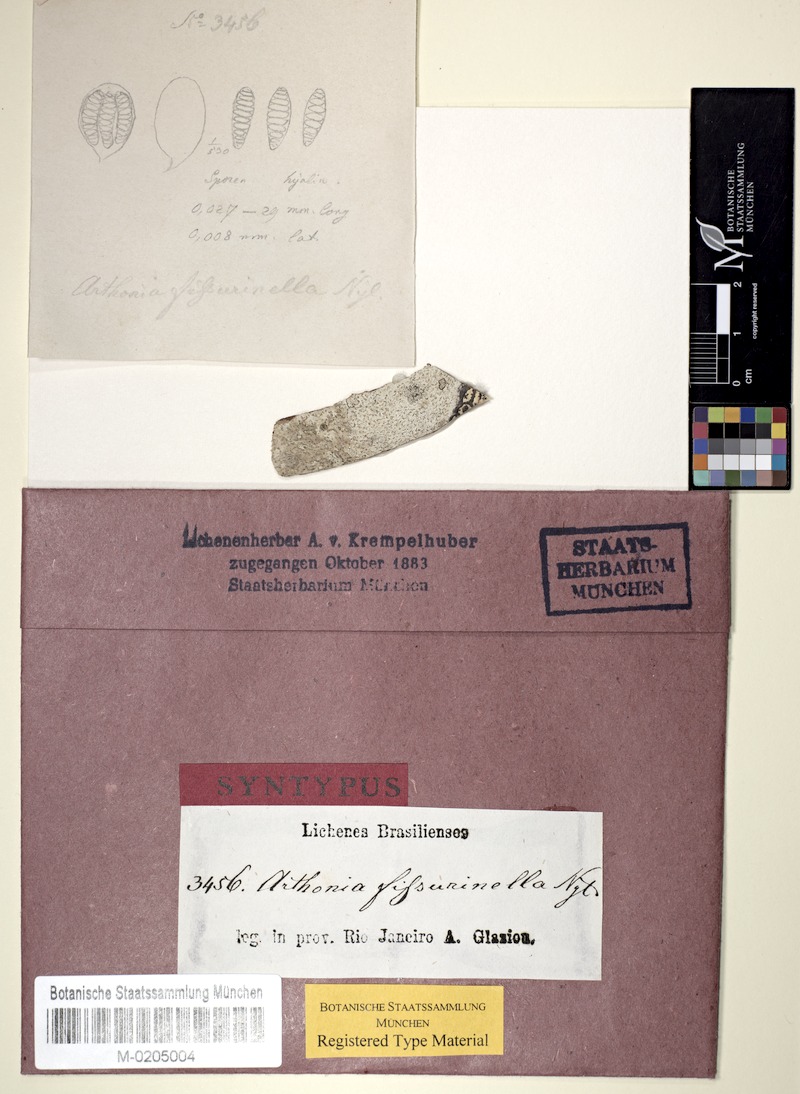 No 3456
1/530
Sporen hyalin.
0,027 — 29 mm. long
0,008 mm. lat.
Arthonia fissurinella Nyl.
BOTANISCHE
STAATSSAMMLUNG
MÜNCHEN
copyright reserved
0 1 2
cm
Lichenenherber A. v. Krempelhuber
zugegangen Oktober 1883
Staatsherbarium München
STAATS-
HERBARIUM
MÜNCHEN
SYNTYPUS
Lichenes Brasilienses
3456. Arthonia fissurinella Nyl.
leg. in prov. Rio Janeiro A. Glaziou.
Botanische Staatssammlung München
M-0205004
BOTANISCHE STAATSSAMMLUNG
MÜNCHEN
Registered Type Material